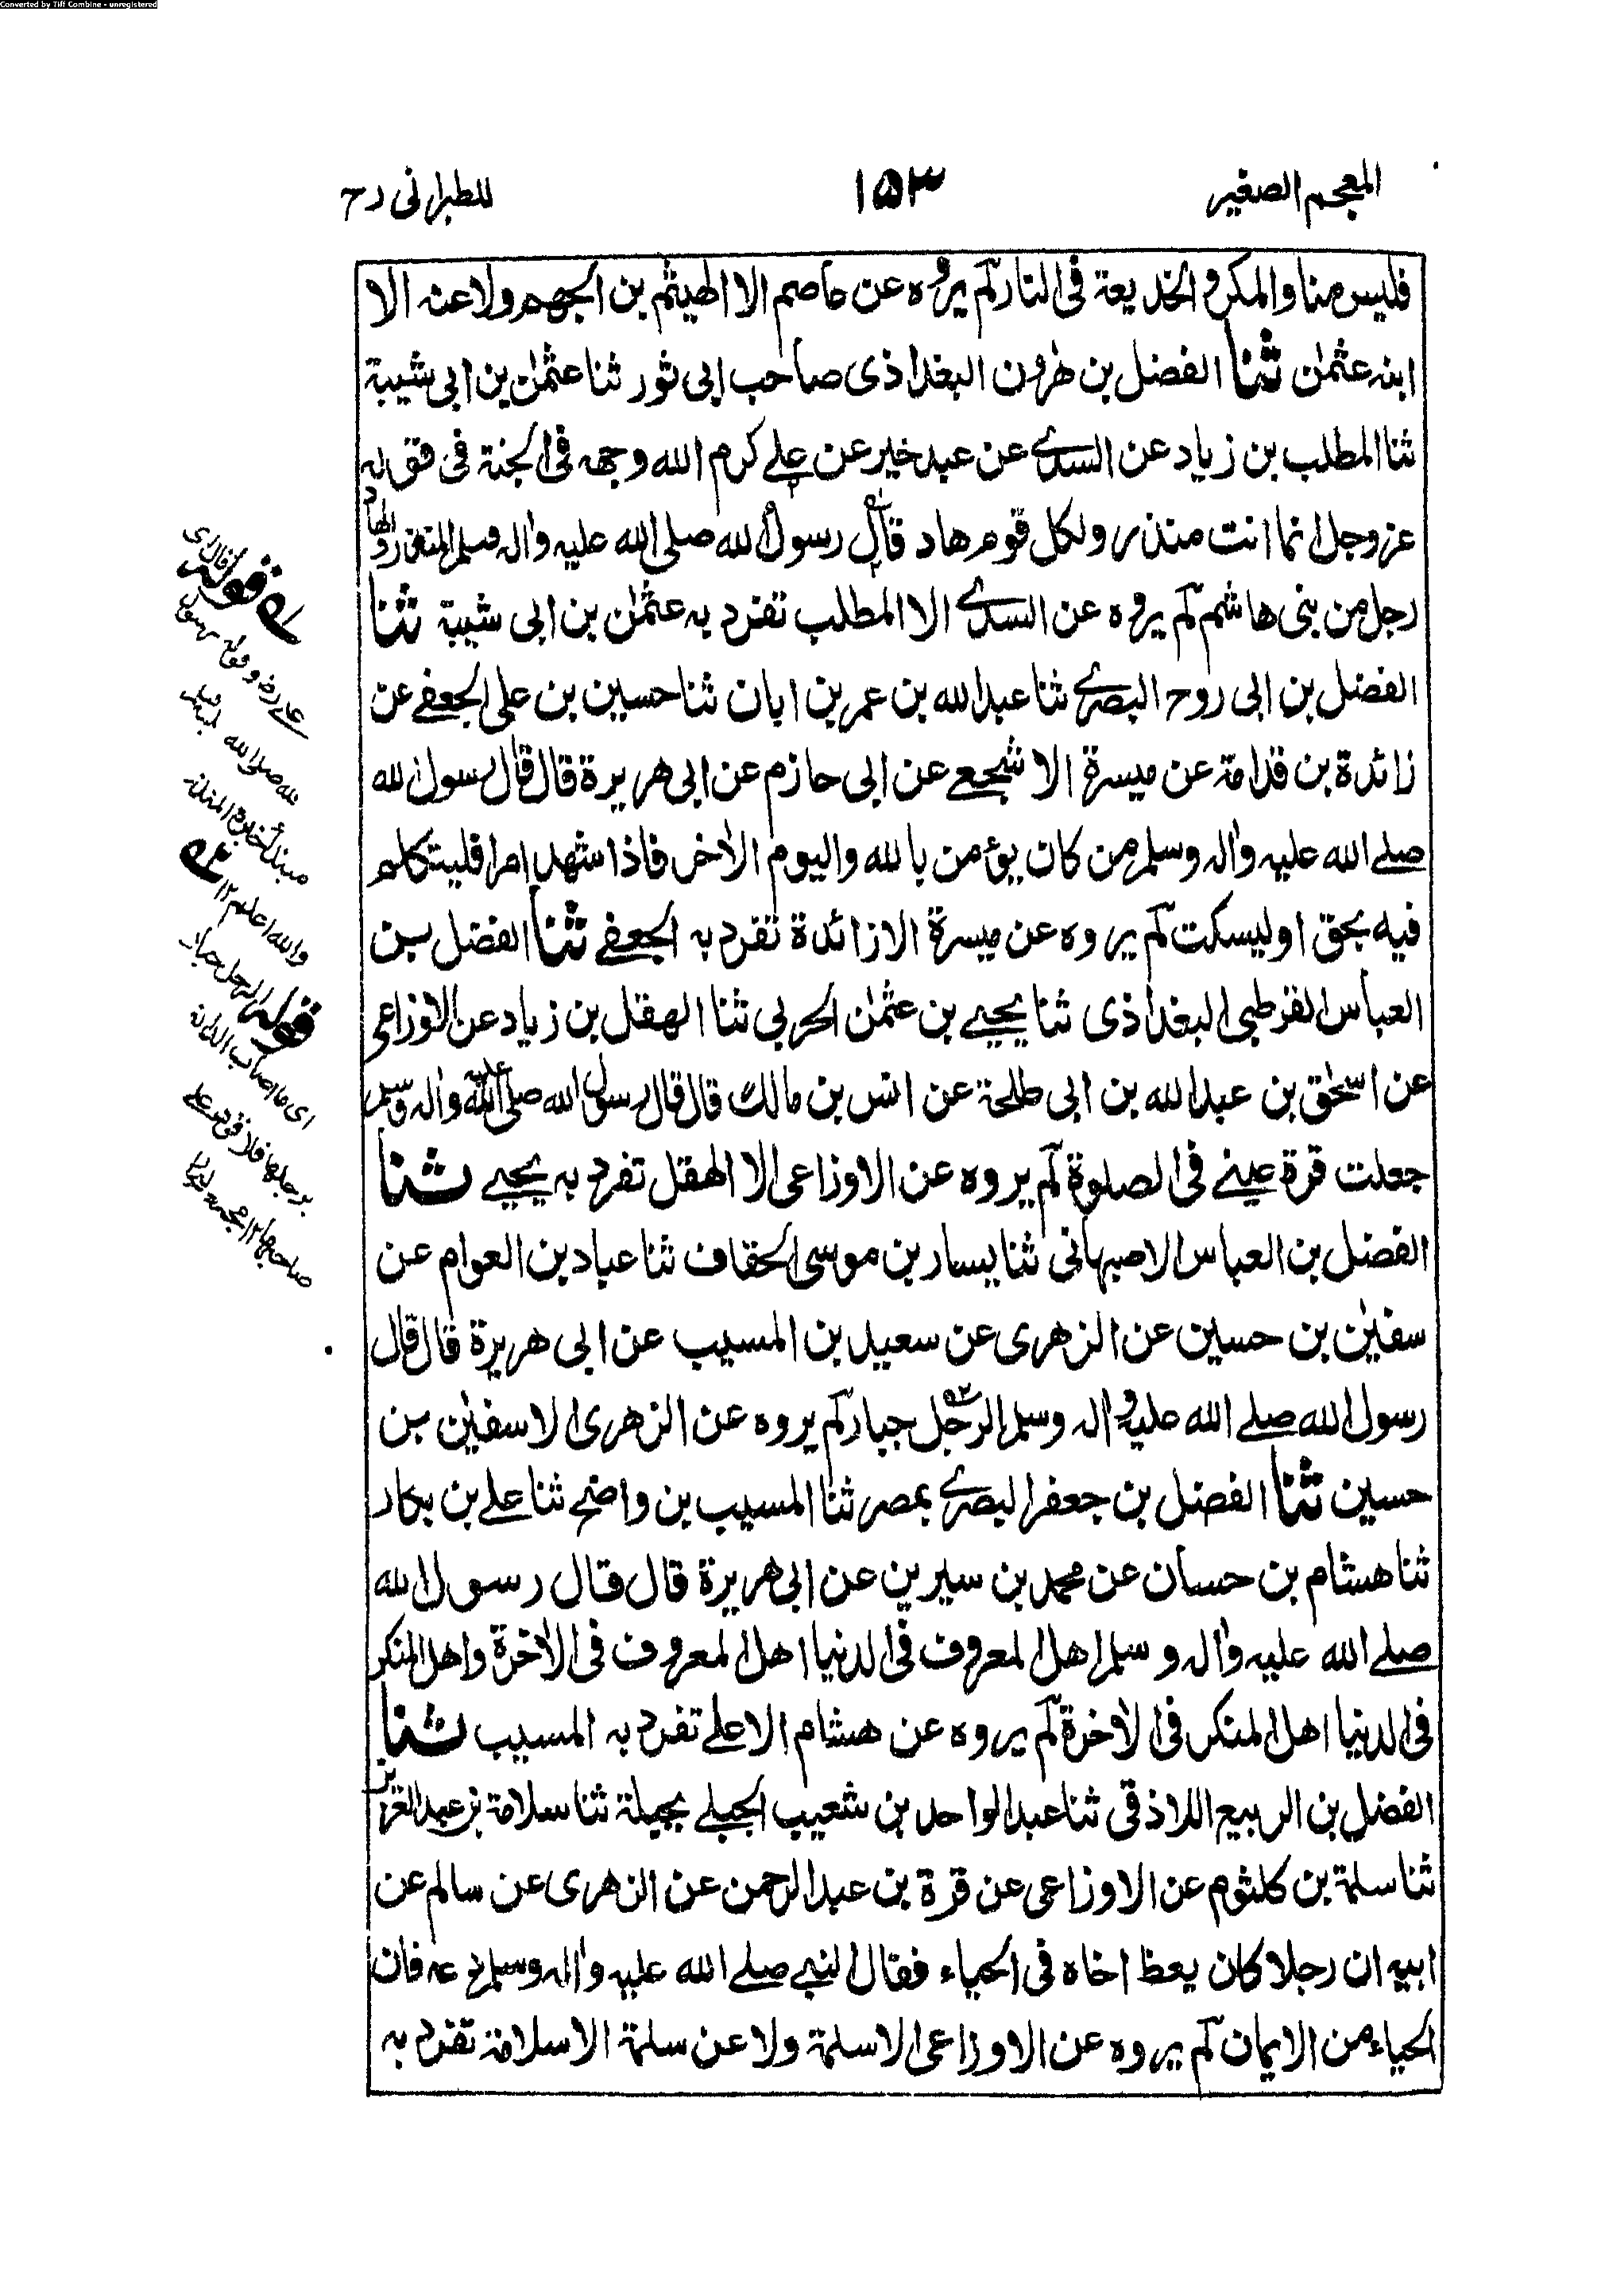 Converted by Tiff Combine - unregistered
المعجم الصغير
١٥٣
للطبرانی رح
فلیس منا والمکر والخدیعة فی النار لم یروه عن عاصم الا الهیثم بن الجهم ولا عنه الا
ابنه عثمٰن ثنا الفضل بن هٰرون البغداذی صاحب ابی ثور ثنا عثمٰن بن ابی شیبة
ثنا المطلب بن زیاد عن السدی عن عبد خیر عن علی کرم الله وجهه فی الجنة فی قوله
عز وجل انما انت منذر ولکل قوم هاد قال رسول الله صلی الله علیه واٰله وسلم المنذر والهاد
رجل من بنی هاشم لم یروه عن السدی الا المطلب تفرد به عثمٰن بن ابی شیبة ثنا
الفضل بن ابی روح البصری ثنا عبد الله بن عمر بن ابان ثنا حسین بن علی الجعفی عن
زائدة بن قدامة عن میسرة الاشجعی عن ابی حازم عن ابی هریرة قال قال رسول الله
صلی الله علیه واٰله وسلم من کان یؤمن بالله والیوم الاٰخر فاذا شهد امرا فلیتکلم
فیه بحق او لیسکت لم یروه عن میسرة الا زائدة تفرد به الجعفی ثنا الفضل بن
العباس القرطبی البغداذی ثنا یحیی بن عثمٰن الحربی ثنا الهقل بن زیاد عن الاوزاعی
عن اسحٰق بن عبد الله بن ابی طلحة عن انس بن مالك قال قال رسول الله صلی الله علیه واٰله وسلم
جعلت قرة عینی فی الصلوة لم یروه عن الاوزاعی الا الهقل تفرد به یحیی ثنا
الفضل بن العباس الاصبهانی ثنا یسار بن موسی الخفاف ثنا عباد بن العوام عن
سفیٰن بن حسین عن الزهری عن سعید بن المسیب عن ابی هریرة قال قال
رسول الله صلی الله علیه واٰله وسلم الرجل جبار لم یروه عن الزهری الا سفیٰن بن
حسین ثنا الفضل بن جعفر البصری بمصر ثنا المسیب بن واضح ثنا علی بن بکار
ثنا هشام بن حسان عن محمد بن سیرین عن ابی هریرة قال قال رسول الله
صلی الله علیه واٰله وسلم اهل المعروف فی الدنیا اهل المعروف فی الاٰخرة واهل المنکر
فی الدنیا اهل المنکر فی الاٰخرة لم یروه عن هشام الا علی تفرد به المسیب ثنا
الفضل بن الربیع اللاذقی ثنا عبد الواحد بن شعیب الجبلی بجبلة ثنا سلامة بن عبد العزیز
ثنا سلمة بن کلثوم عن الاوزاعی عن قرة بن عبد الرحمن عن الزهری عن سالم عن
ابیه ان رجلا کان یعظ اخاه فی الحیاء فقال النبی صلی الله علیه واٰله وسلم دعه فان
الحیاء من الایمان لم یروه عن الاوزاعی الا سلمة ولا عن سلمة الا سلامة تفرد به
قوله قال ای
علی رض وقوله رسول
الله صلی الله علیه وسلم
والله اعلم ١٢
قوله الرجل جبار
ای ما اصاب الدابة
برجلها فلا قود علی
صاحبها ١٢